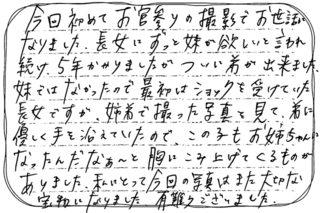 今回初めてお宮参りの撮影でお世話に
なりました。長女にずっと妹が欲しいと言われ
続け、5年かかりましたがついに弟が出来ました。
妹ではなかったので最初はショックを受けていた
長女ですが、姉弟で撮った写真を見て、弟に
優しく手を添えていたので、この子もお姉ちゃんに
なったんだなぁ〜と胸にこみ上げてくるものが
ありました。私にとって今回の写真はまた大切な
宝物になりました。有難うございました。